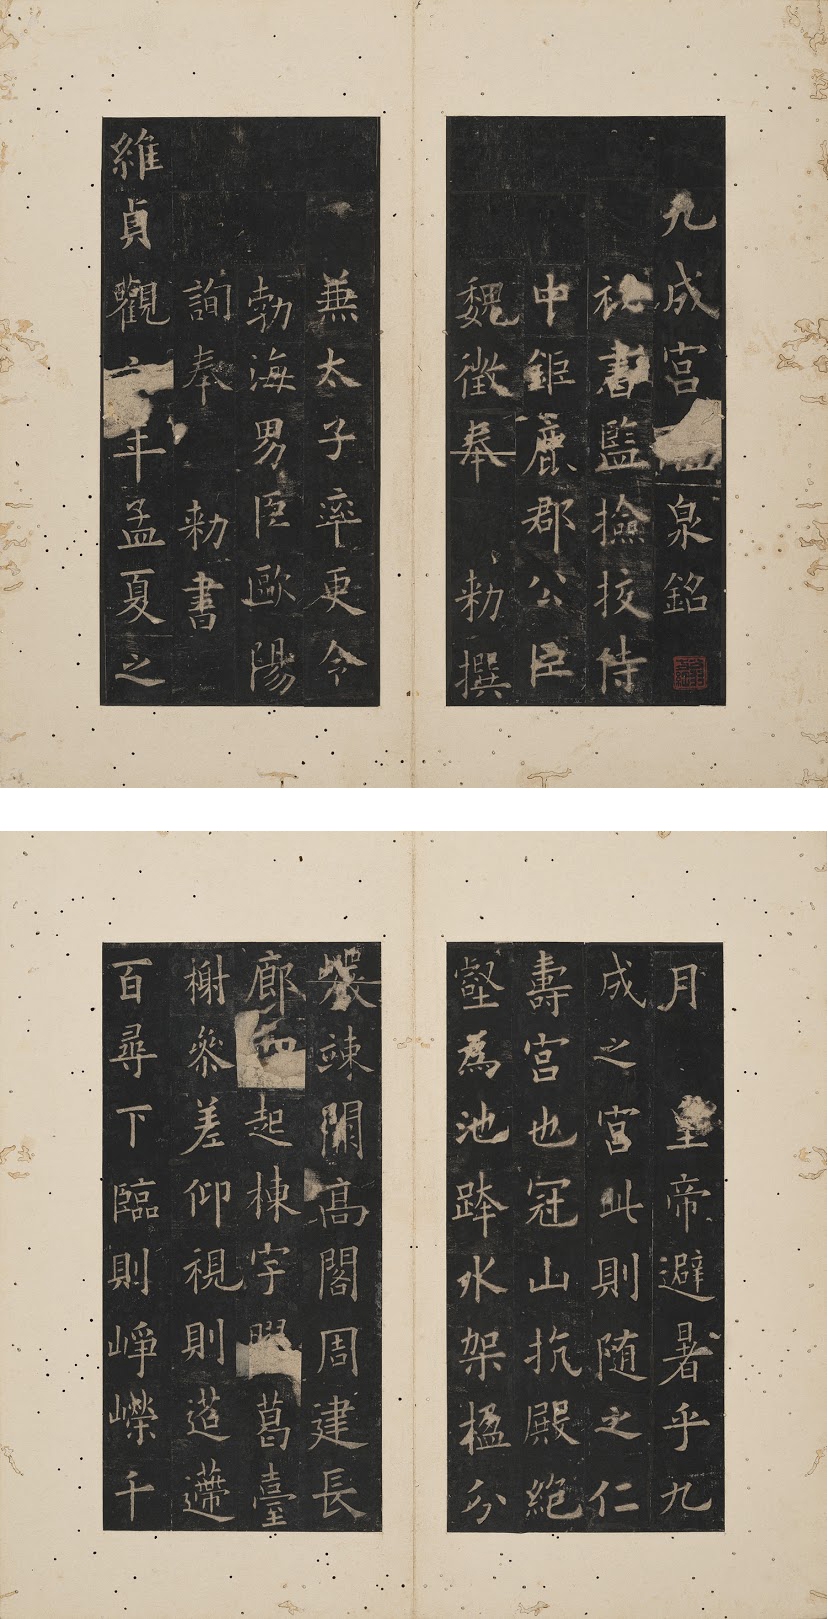 九成宮泉銘
秘書監撿挍侍
中鉅鹿郡公臣
魏徵奉 勑撰
兼太子率更令
勃海男臣歐陽
詢奉 勑書
維貞觀六年孟夏之
月 皇帝避暑乎九
成之宮此則随之仁
壽宮也冠山抗殿絕
壑為池跨水架楹分
巖竦闕高閣周建長
廊四起棟宇葛臺
榭參差仰視則迢遰
百尋下臨則崢嶸千